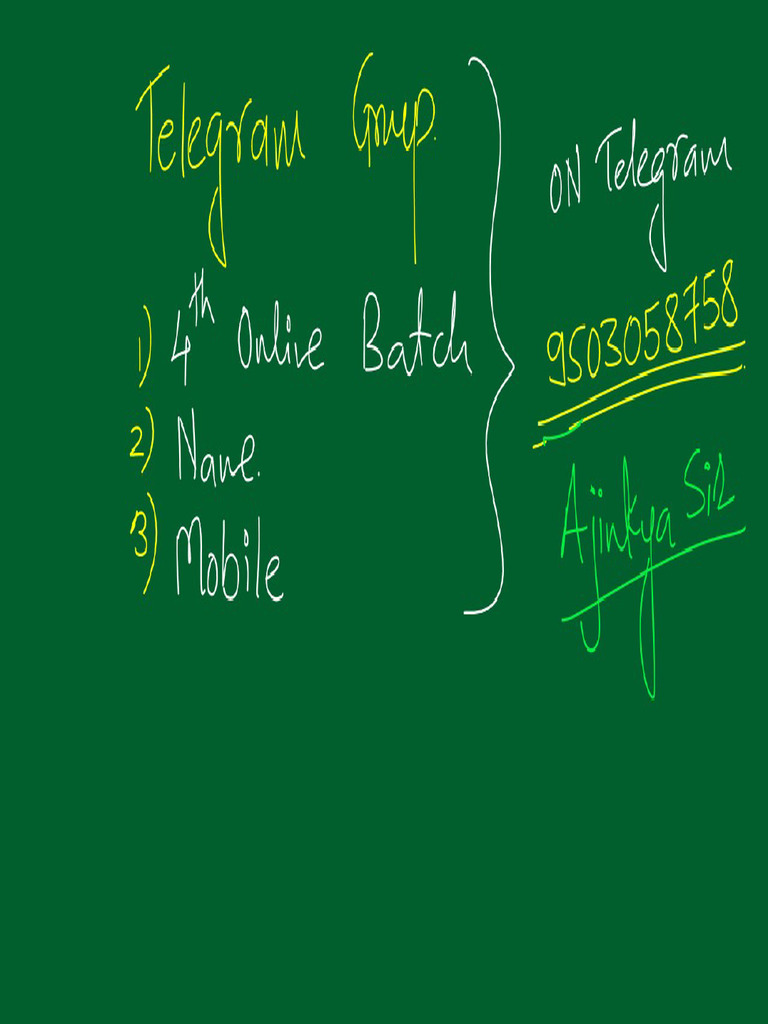 Telegram Group.
1) 4th Online Batch
2) Name.
3) Mobile
ON Telegram
9503058758
Ajinkya Sir